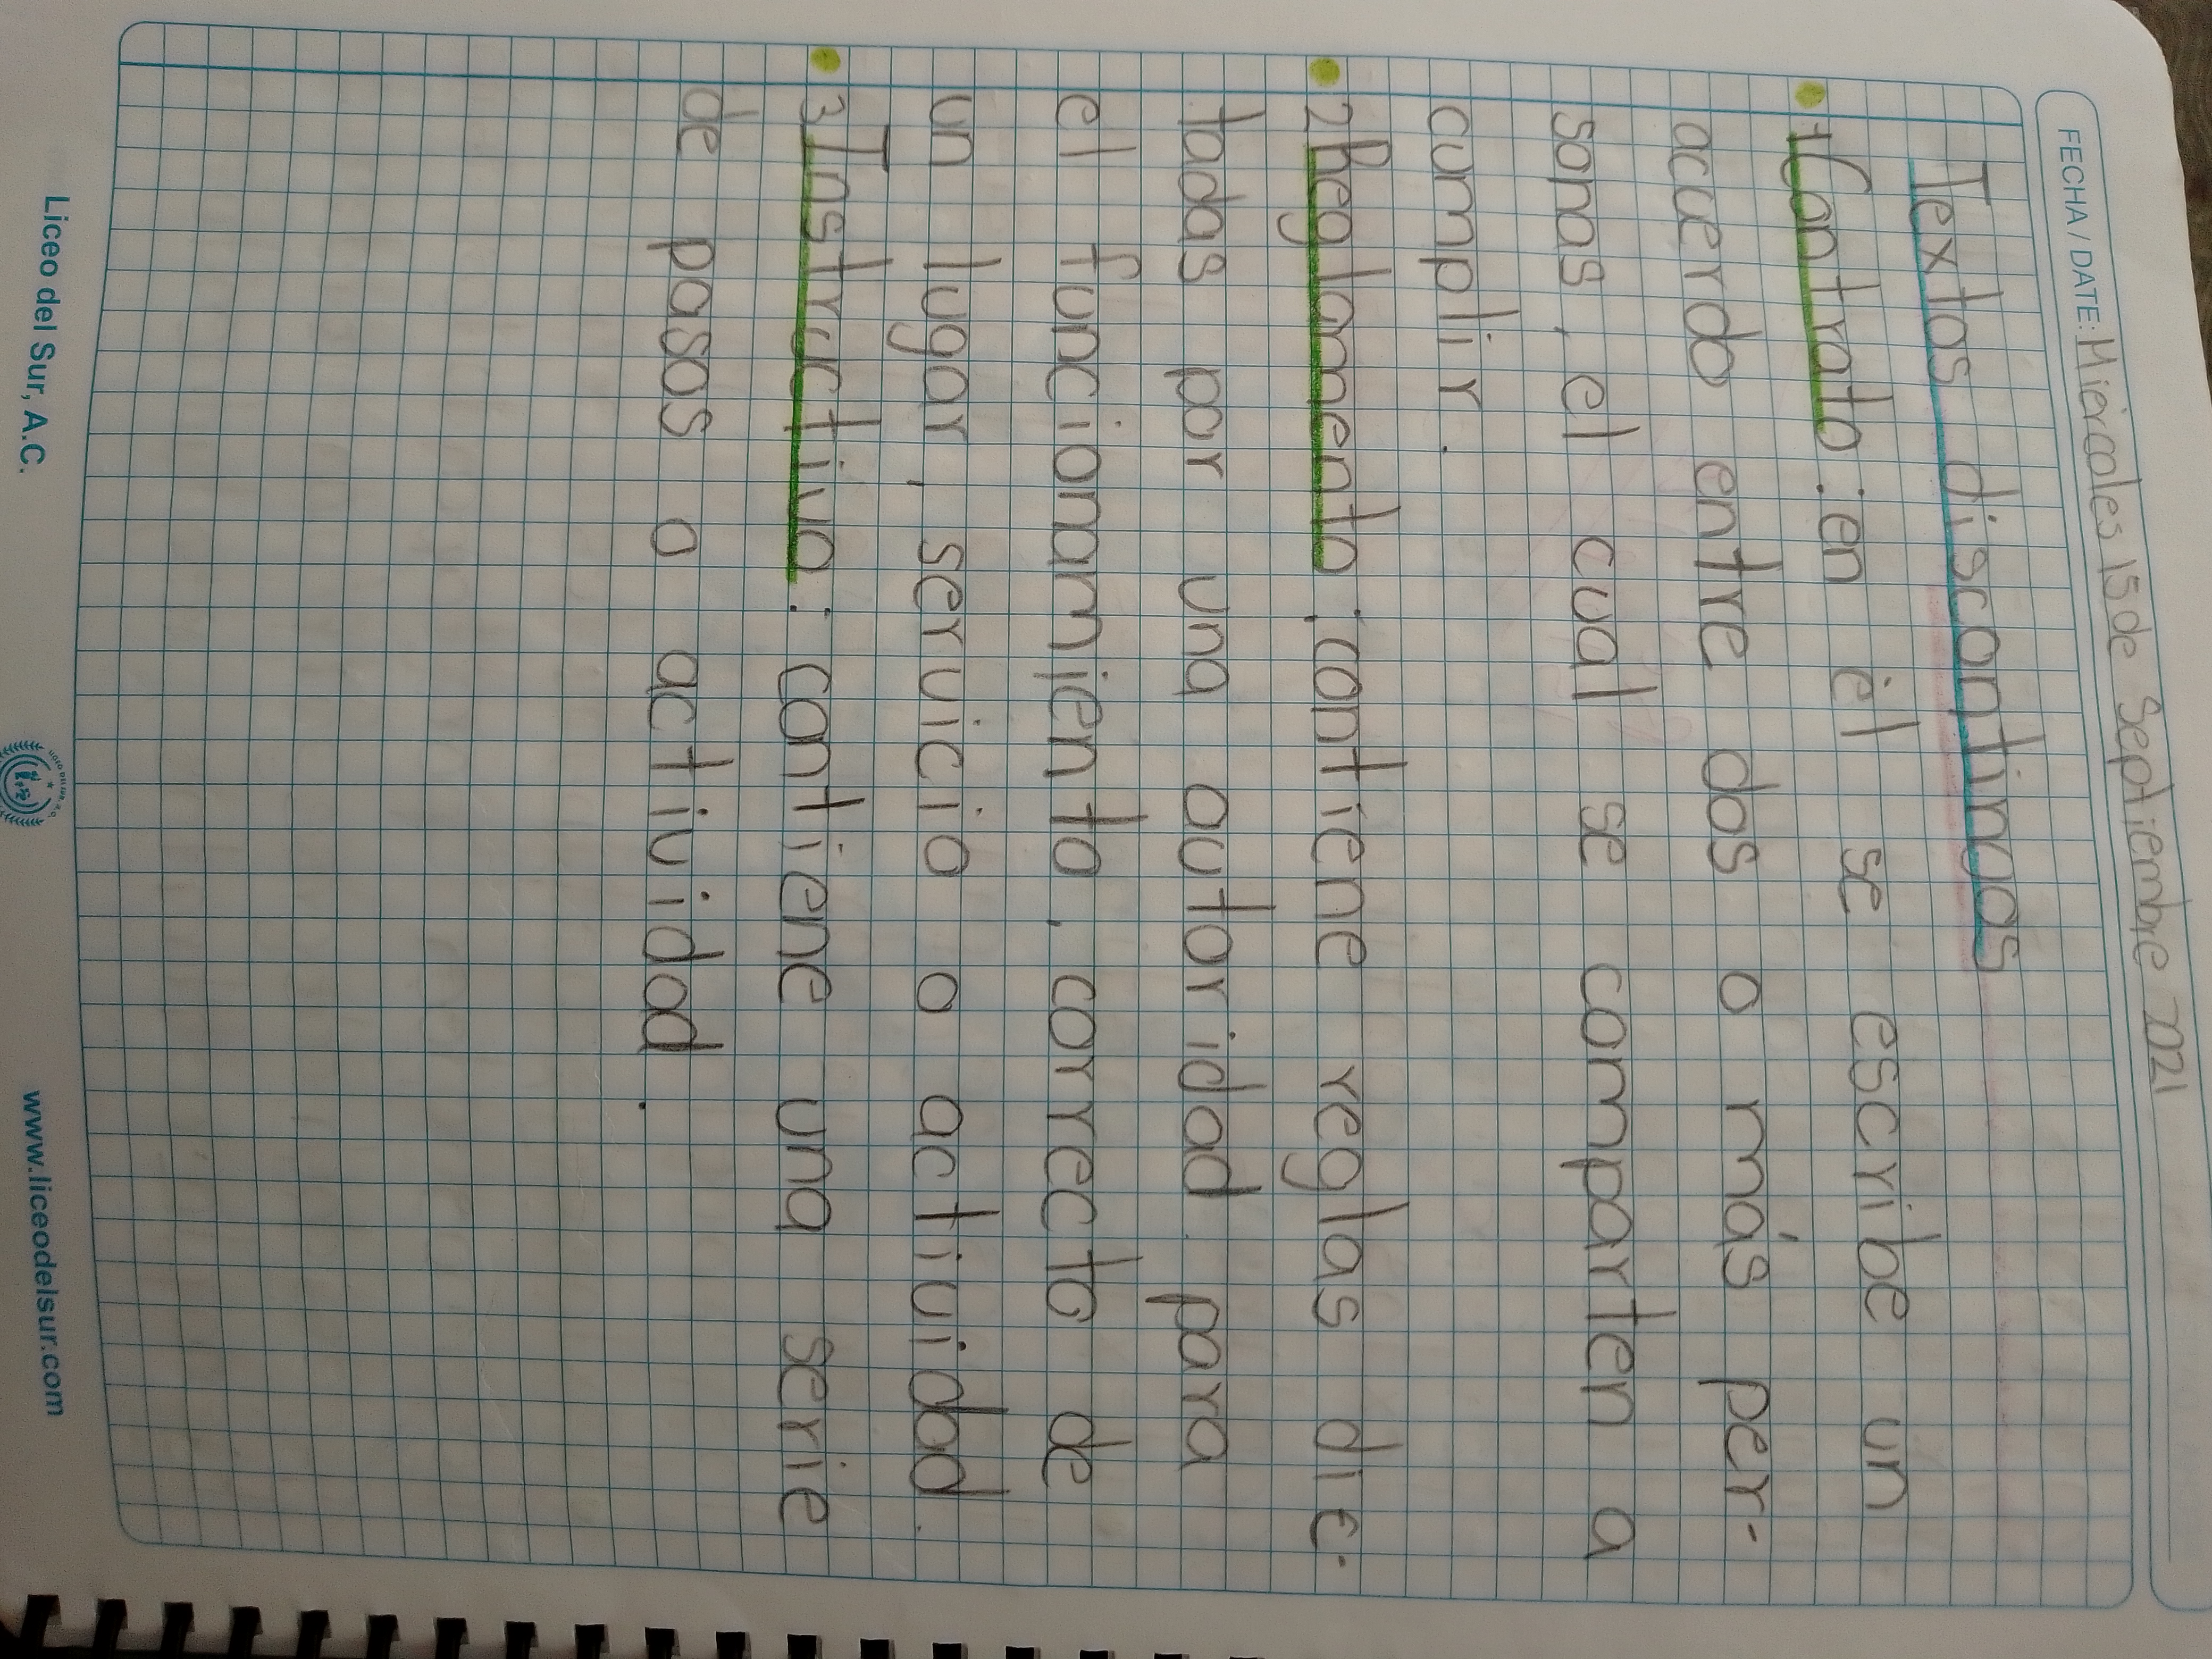 FECHA / DATE: Miércoles 15 de Septiembre 2021
Textos discontinuos
1 Contrato : en él se escribe un
acuerdo entre dos o más per-
sonas, el cual se comparten a
cumplir.
2 Reglamento : contiene reglas dic-
tadas por una autoridad para
el funcionamiento, correcto de
un lugar, servicio o actividad.
3 Instructivo : contiene una serie
de pasos o actividad.
Liceo del Sur, A.C. www.liceodelsur.com